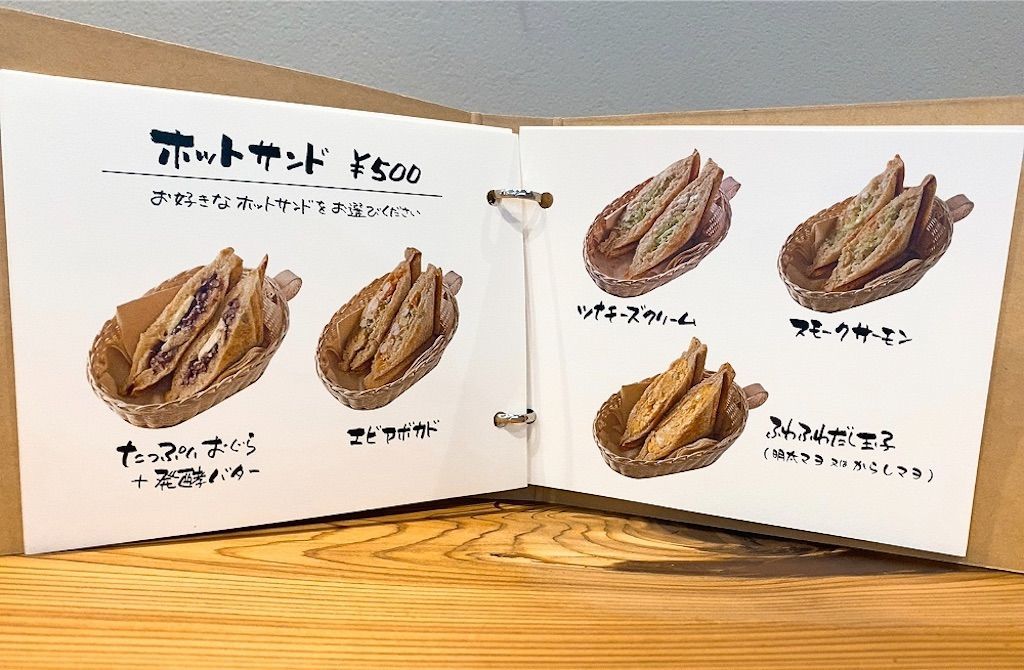 ホットサンド ¥500
お好きなホットサンドをお選びください
たっぷりおぐら
+発酵バター
エビアボカド
ツナチーズクリーム
スモークサーモン
ふわふわだし玉子
(明太マヨ又はからしマヨ)